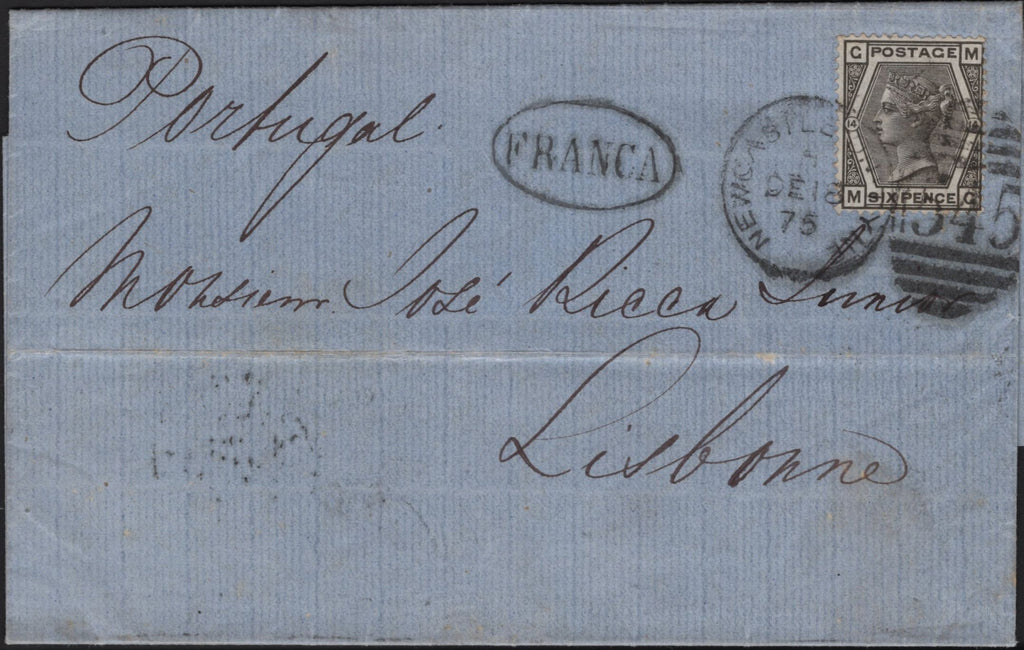 Portugal.
FRANCA
NEWCASTLE
A
DE 18
75
545
G POSTAGE M
M SIX PENCE G
Monsieur José Ricca Junior
Lisbonne